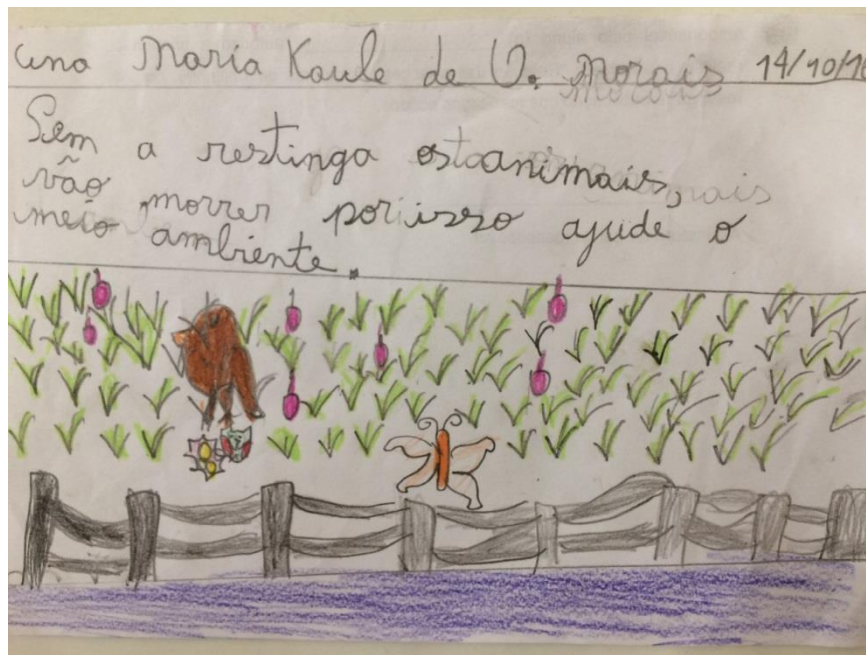 Ana Maria Kaule de V. Morais 14/10/16
Sem a restinga os animais,
vão morrer por isso ajude o
meio ambiente.